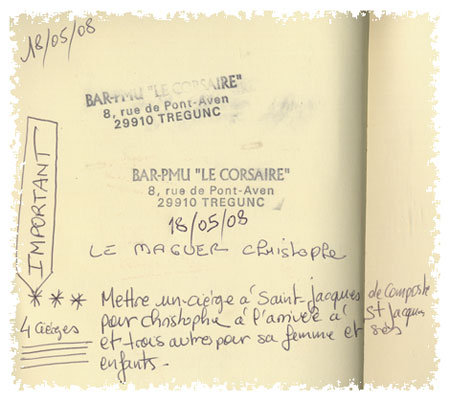 18/05/08
BAR-PMU "LE CORSAIRE"
8, rue de Pont-Aven
29910 TREGUNC
BAR-PMU "LE CORSAIRE"
8, rue de Pont-Aven
29910 TREGUNC
18/05/08
LE MAGUER Christophe
IMPORTANT
*** Mettre un cièrge à Saint-Jacques de Compostelle
4 cièrges pour christophe à l'arrivée à St Jacques
et trois autres pour sa femme et ses
enfants.